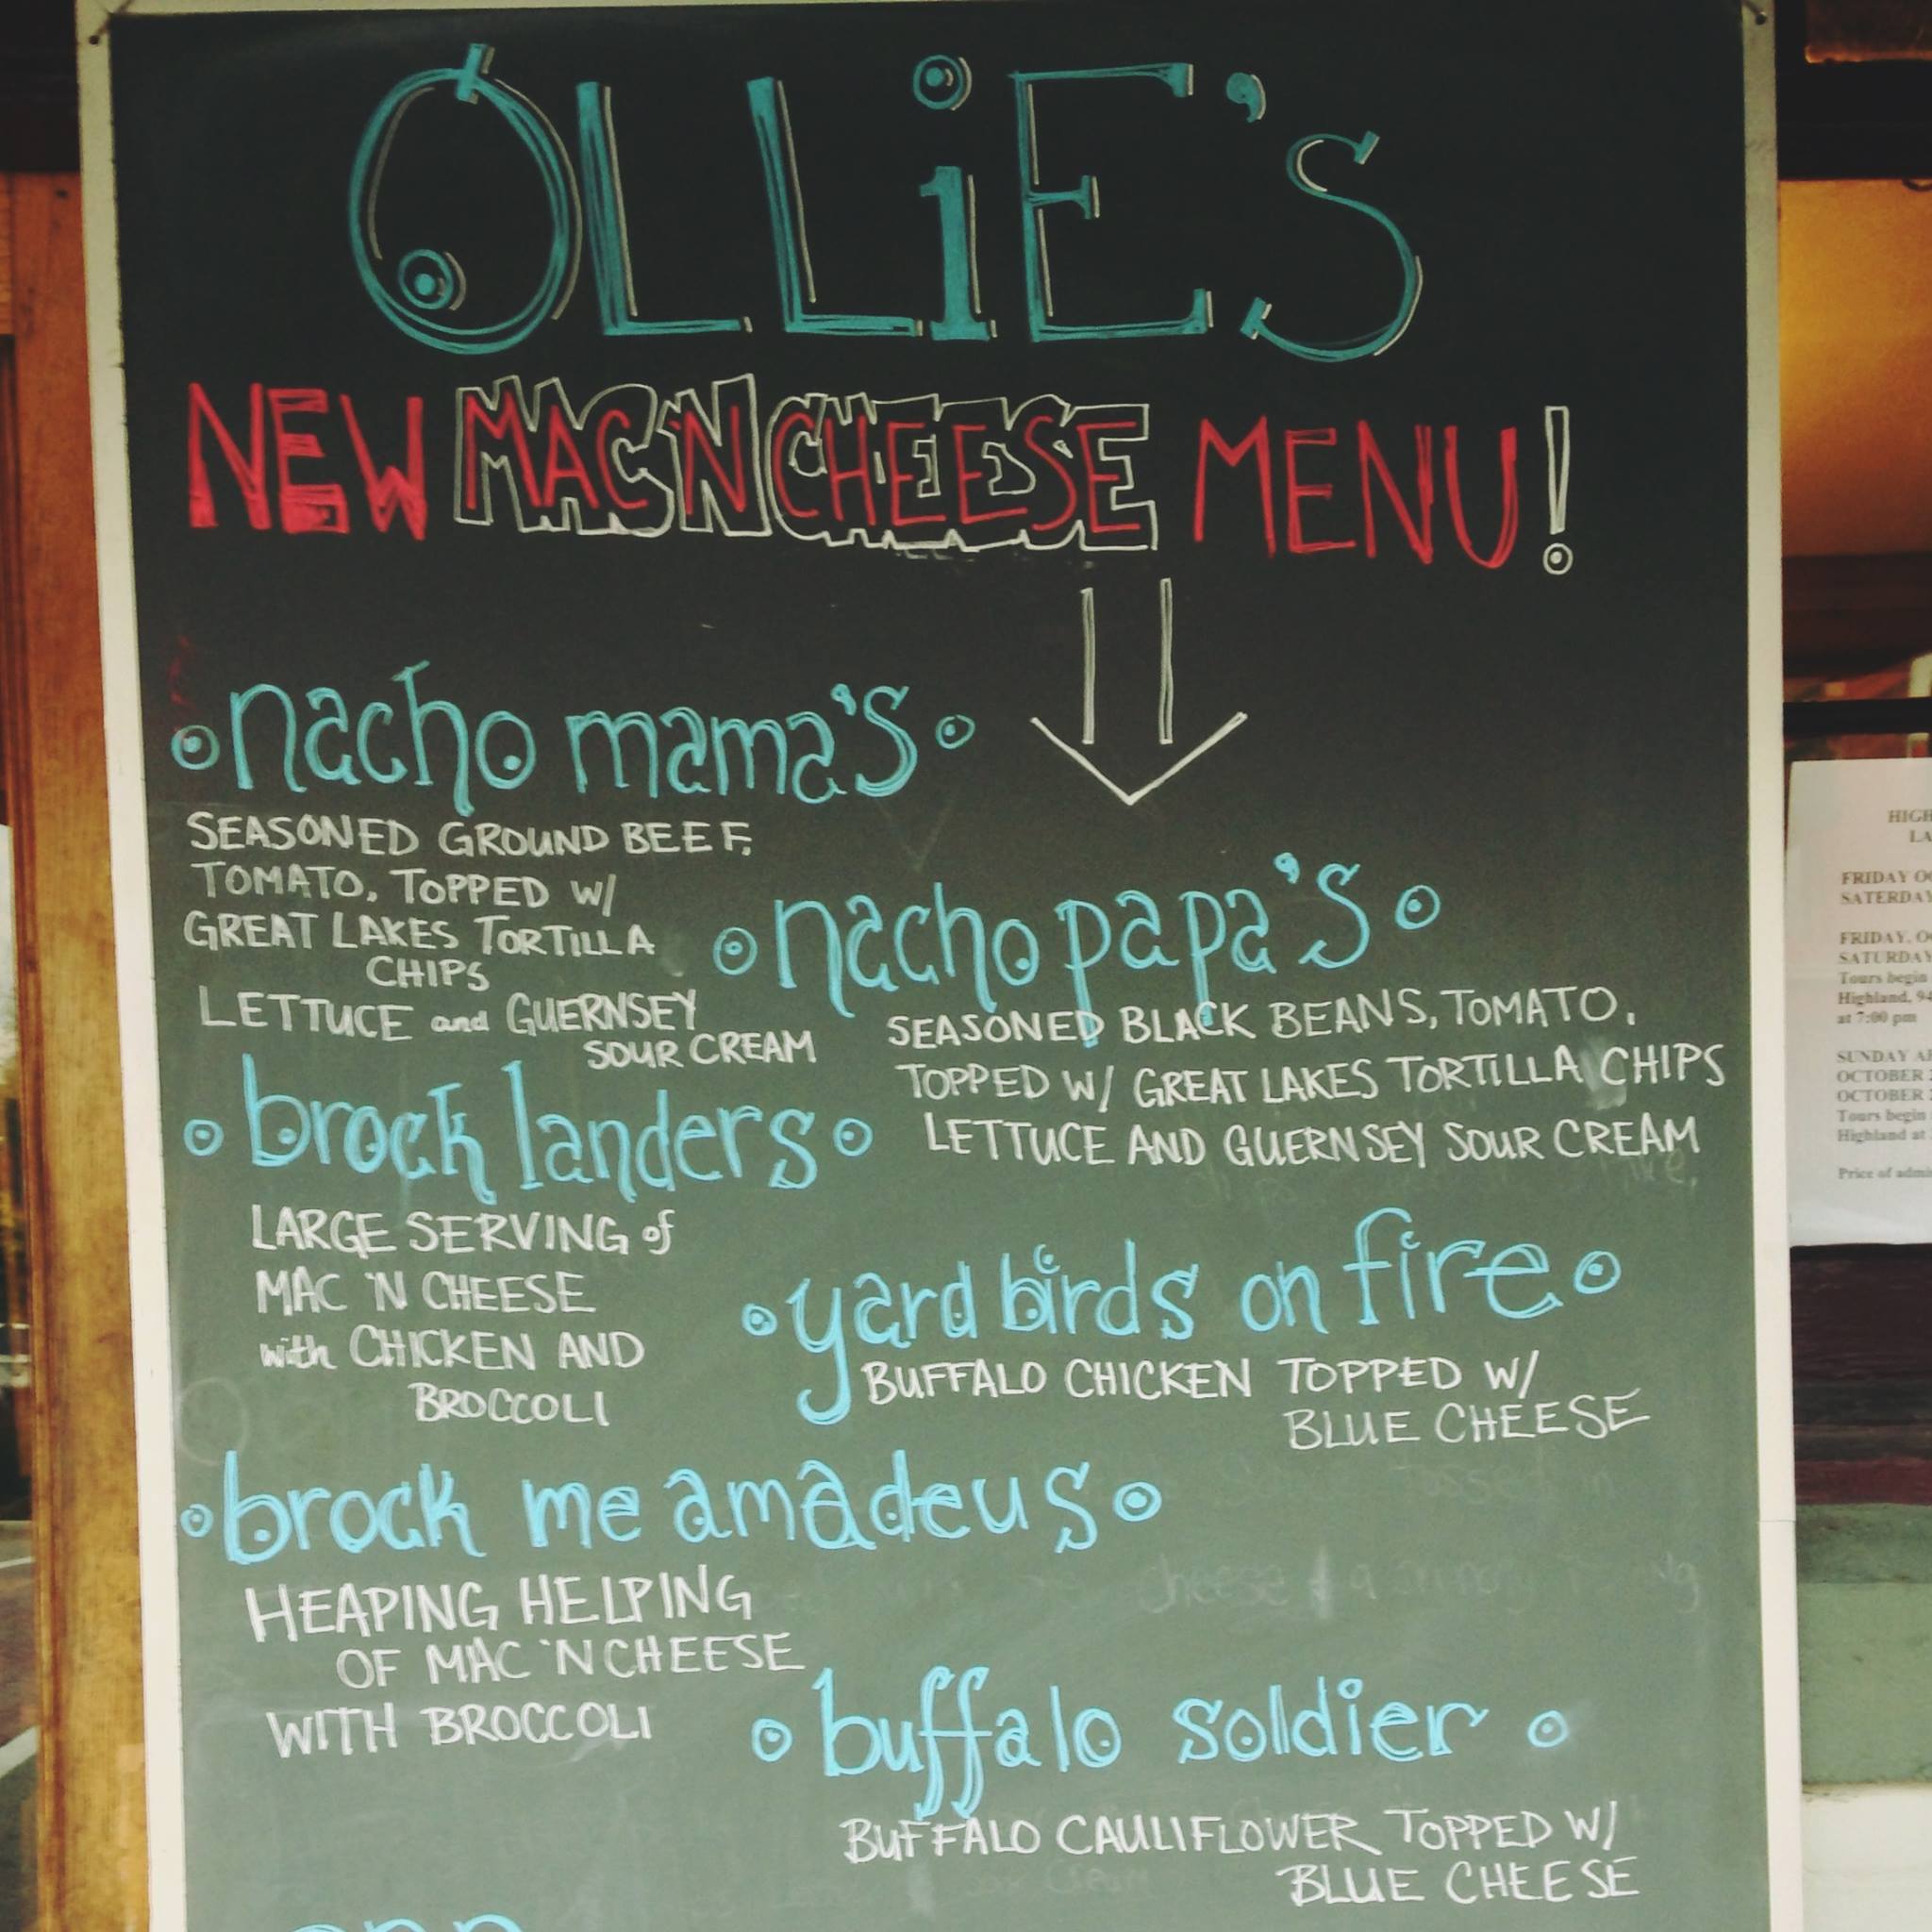 OLLiE's
NEW MAC'N CHEESE MENU!
nacho mama's
SEASONED GROUND BEEF,
TOMATO, TOPPED W/
GREAT LAKES TORTILLA
CHIPS
LETTUCE and GUERNSEY
SOUR CREAM
nacho papa's
SEASONED BLACK BEANS, TOMATO,
TOPPED W/ GREAT LAKES TORTILLA CHIPS
LETTUCE AND GUERNSEY SOUR CREAM
brock landers
LARGE SERVING of
MAC 'N CHEESE
with CHICKEN AND
BROCCOLI
yard birds on fire
BUFFALO CHICKEN TOPPED W/
BLUE CHEESE
brock me amadeus
HEAPING HELPING
OF MAC 'N CHEESE
WITH BROCCOLI
buffalo soldier
BUFFALO CAULIFLOWER TOPPED W/
BLUE CHEESE
FRIDAY
SATERDAY
FRIDAY,
SATURDAY
Tours begin
Highland, 94
at 7:00 pm
SUNDAY
OCTOBER
OCTOBER
Tours begin
Highland at
Price of